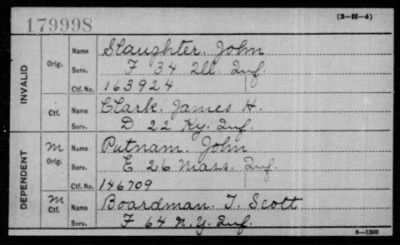 179998
(3-H-4)
INVALID
Orig.
Name Slaughter. John
Serv. F 34 Ill. Inf.
Ctf. No. 163924
Ctf.
Name Clark. James H.
Serv. D 22 Ky. Inf.
DEPENDENT
M Orig.
Name Putnam. John
Serv. E 26 Mass. Inf.
Ctf. No. 146709
M Ctf.
Name Boardman. T. Scott
Serv. F 64 N.Y. Inf.